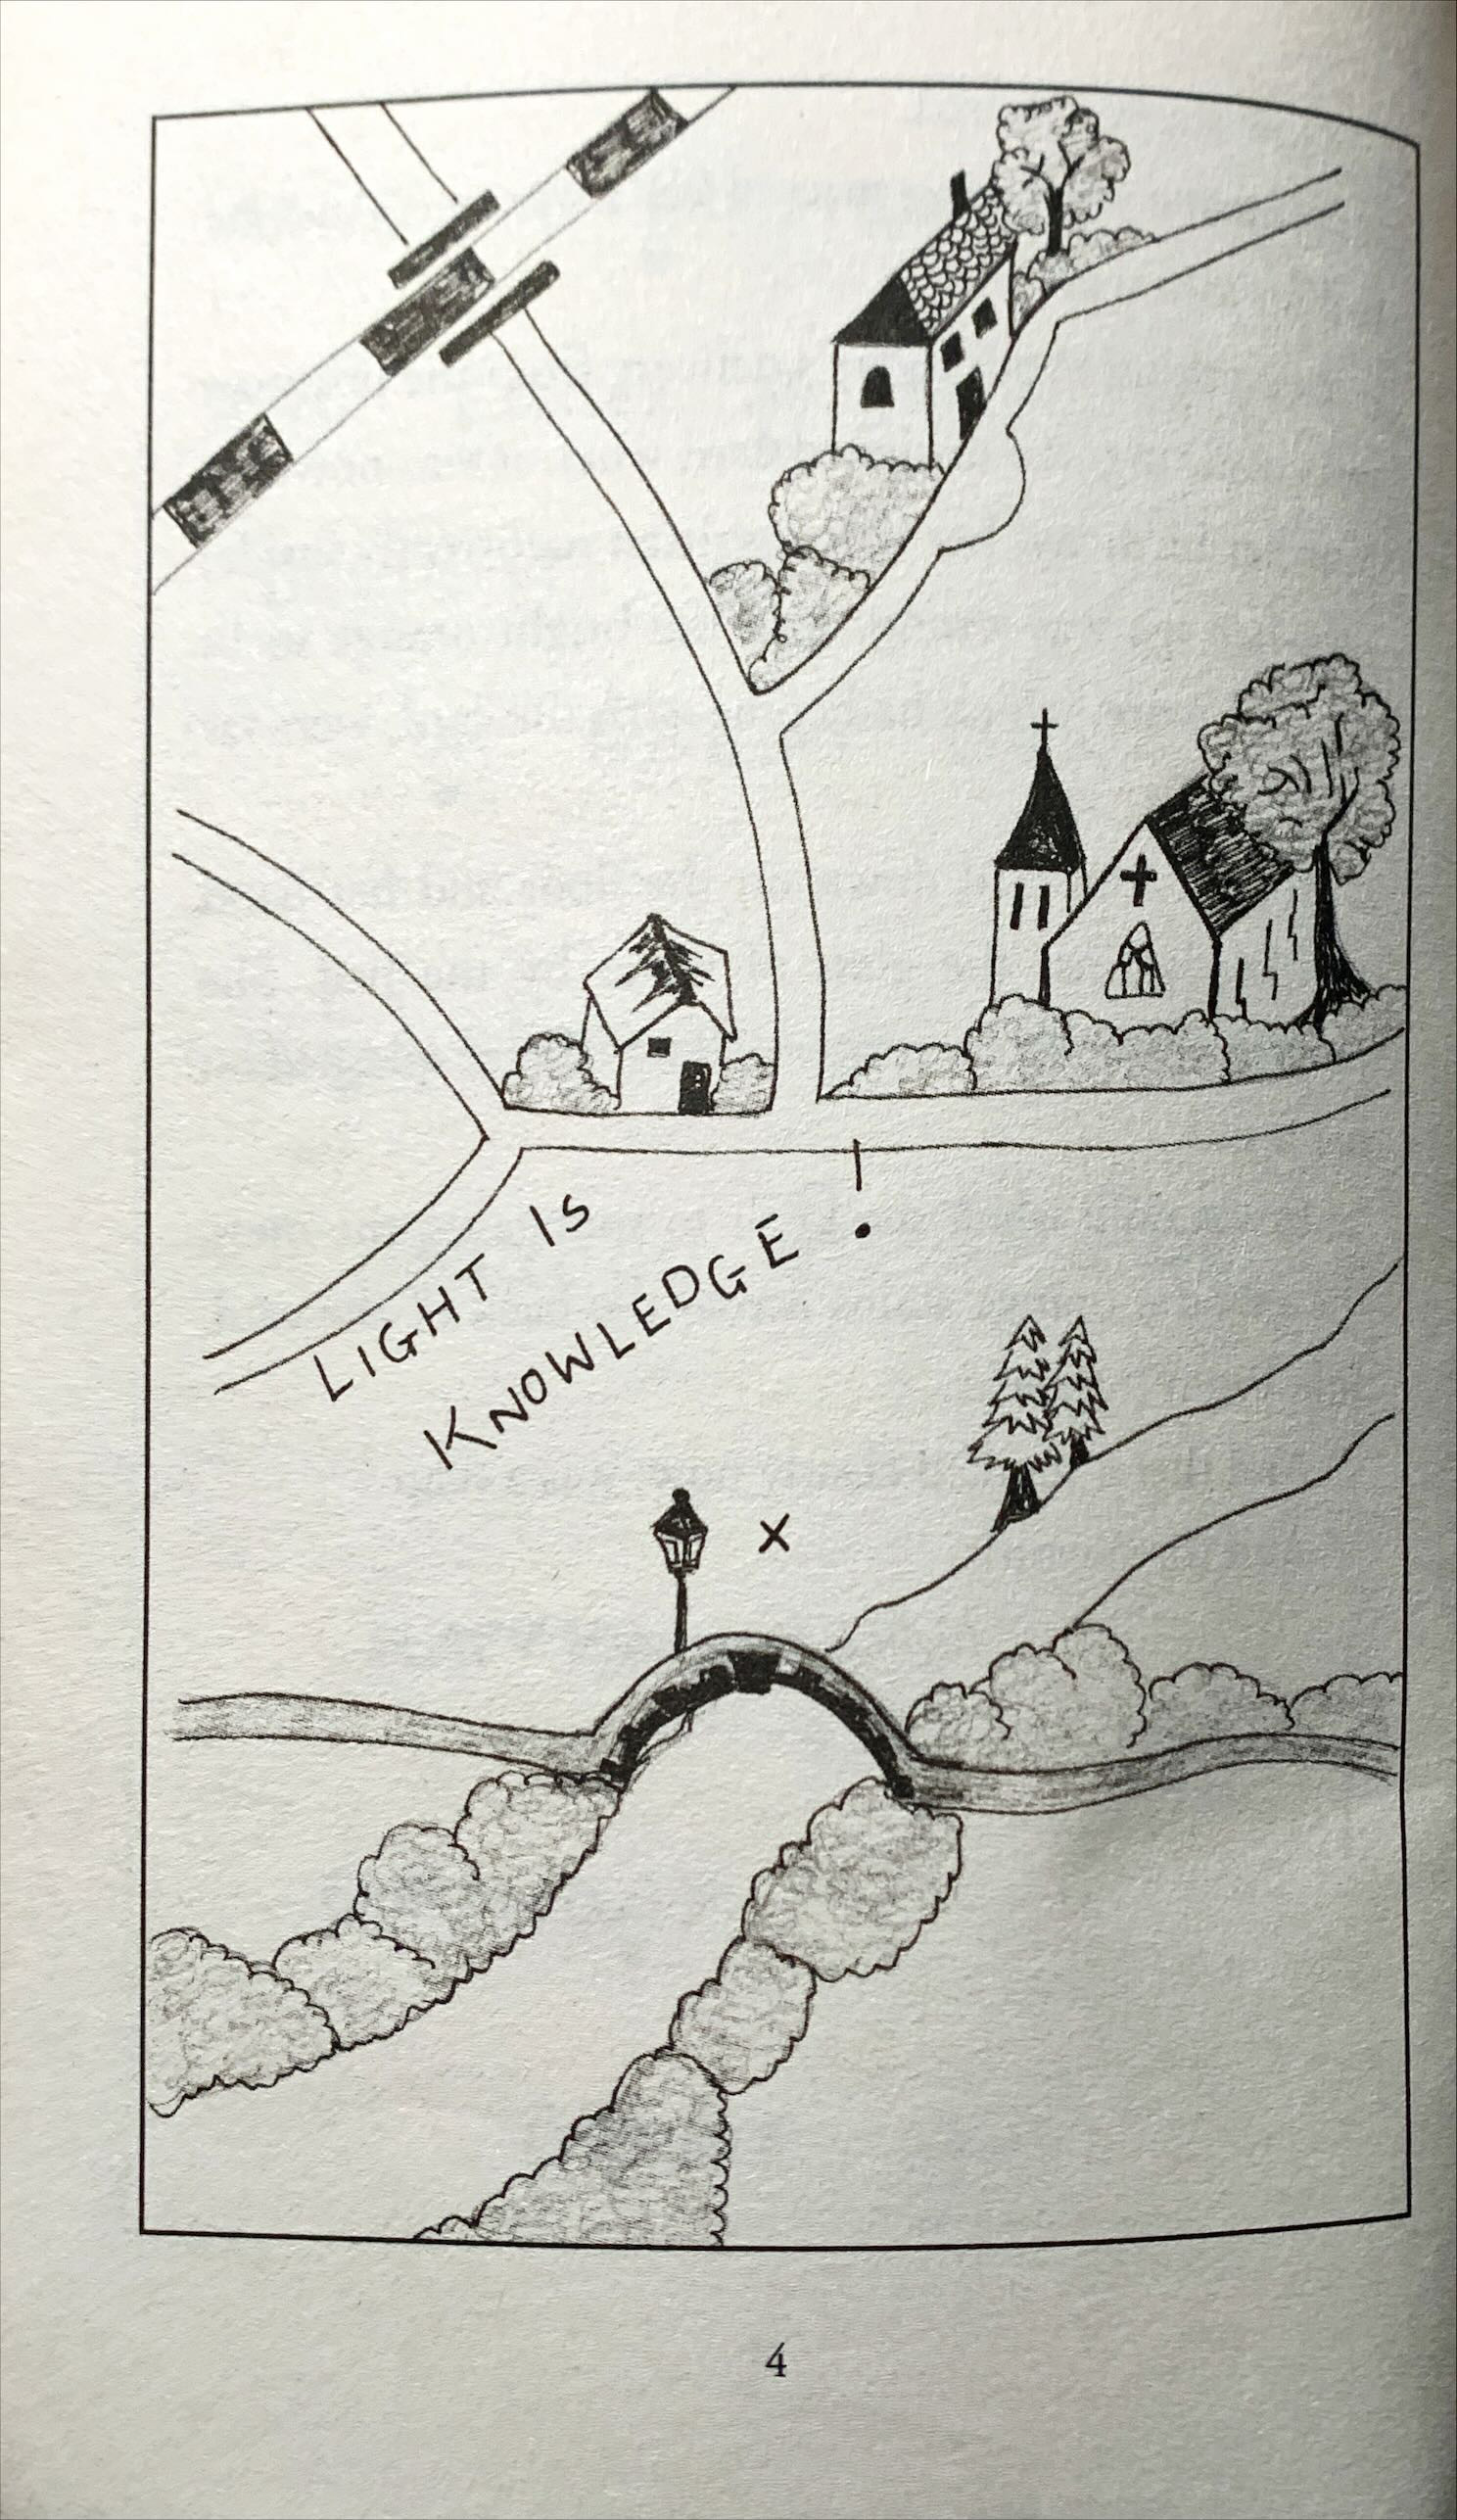 LIGHT IS
KNOWLEDGE!
X
4